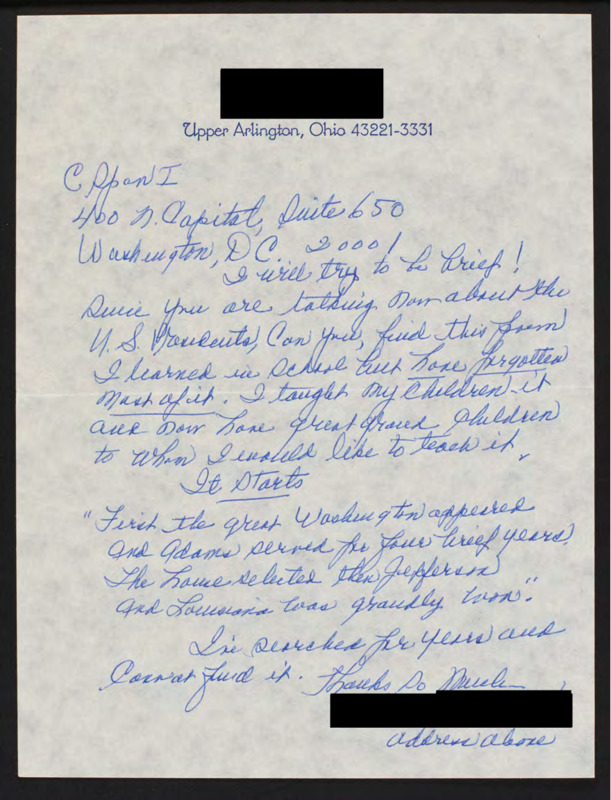 Upper Arlington, Ohio 43221-3331
C Span I
400 N. Capital, Suite 650
Washington, D.C. 20001
I will try to be brief!
Since you are talking now about the
U.S. Presidents, Can you find this poem
I learned in school but have forgotten
most of it. I taught my children it
and now have great grand children
to whom I would like to teach it.
It starts
"First the great Washington appeared
And Adams served for four brief years.
The house selected then Jefferson
And Louisiana was grandly won".
I've searched for years and
Cannot find it. Thanks so Much
address above